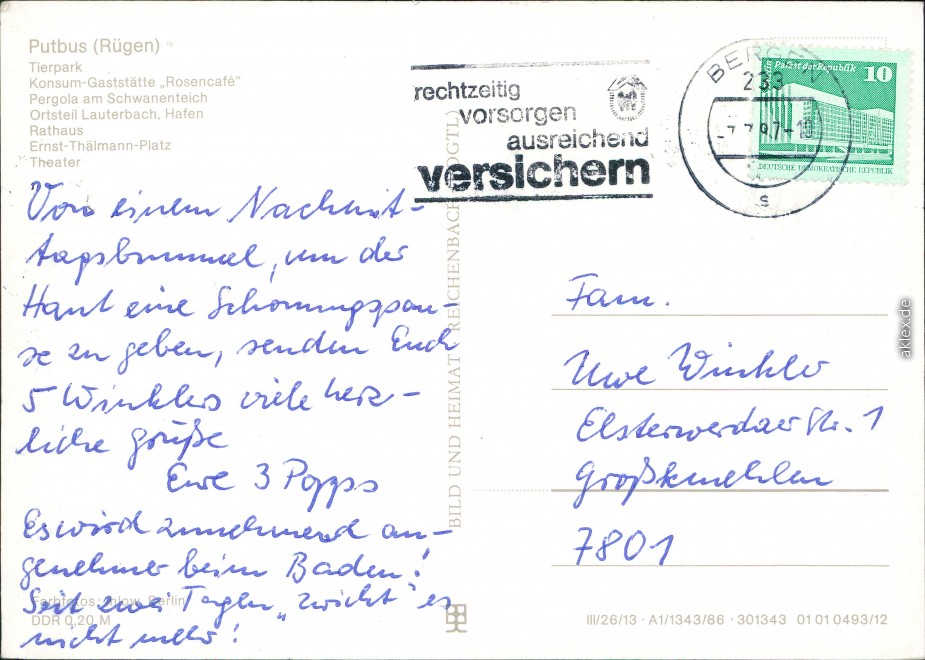 Putbus (Rügen)
Tierpark
Konsum-Gaststätte „Rosencafé“
Pergola am Schwanenteich
Ortsteil Lauterbach, Hafen
Rathaus
Ernst-Thälmann-Platz
Theater
rechtzeitig
vorsorgen
ausreichend
versichern
BERGEN
233
Palast der Republik 10
DEUTSCHE DEMOKRATISCHE REPUBLIK
s
Von einem Nachmit-
tagsbummel, um der
Haut eine Schonungspau-
se zu geben, senden Euch
5 Winklers viele herz-
liche Grüße
Eure 3 Popps
Es wird zunehmend an-
genehmer beim Baden!
Seit zwei Tagen „zwickt“ es
nicht mehr!
Farbfotos: Berlin
DDR 0,20 M
BILD UND HEIMAT REICHENBACH (VOGTL)
Fam.
Uwe Winkler
Elsterwerdaer Str. 1
Großkmehlen
7801
III/26/13 · A1/1343/86 · 301343 01 01 0493/12
aklex.de